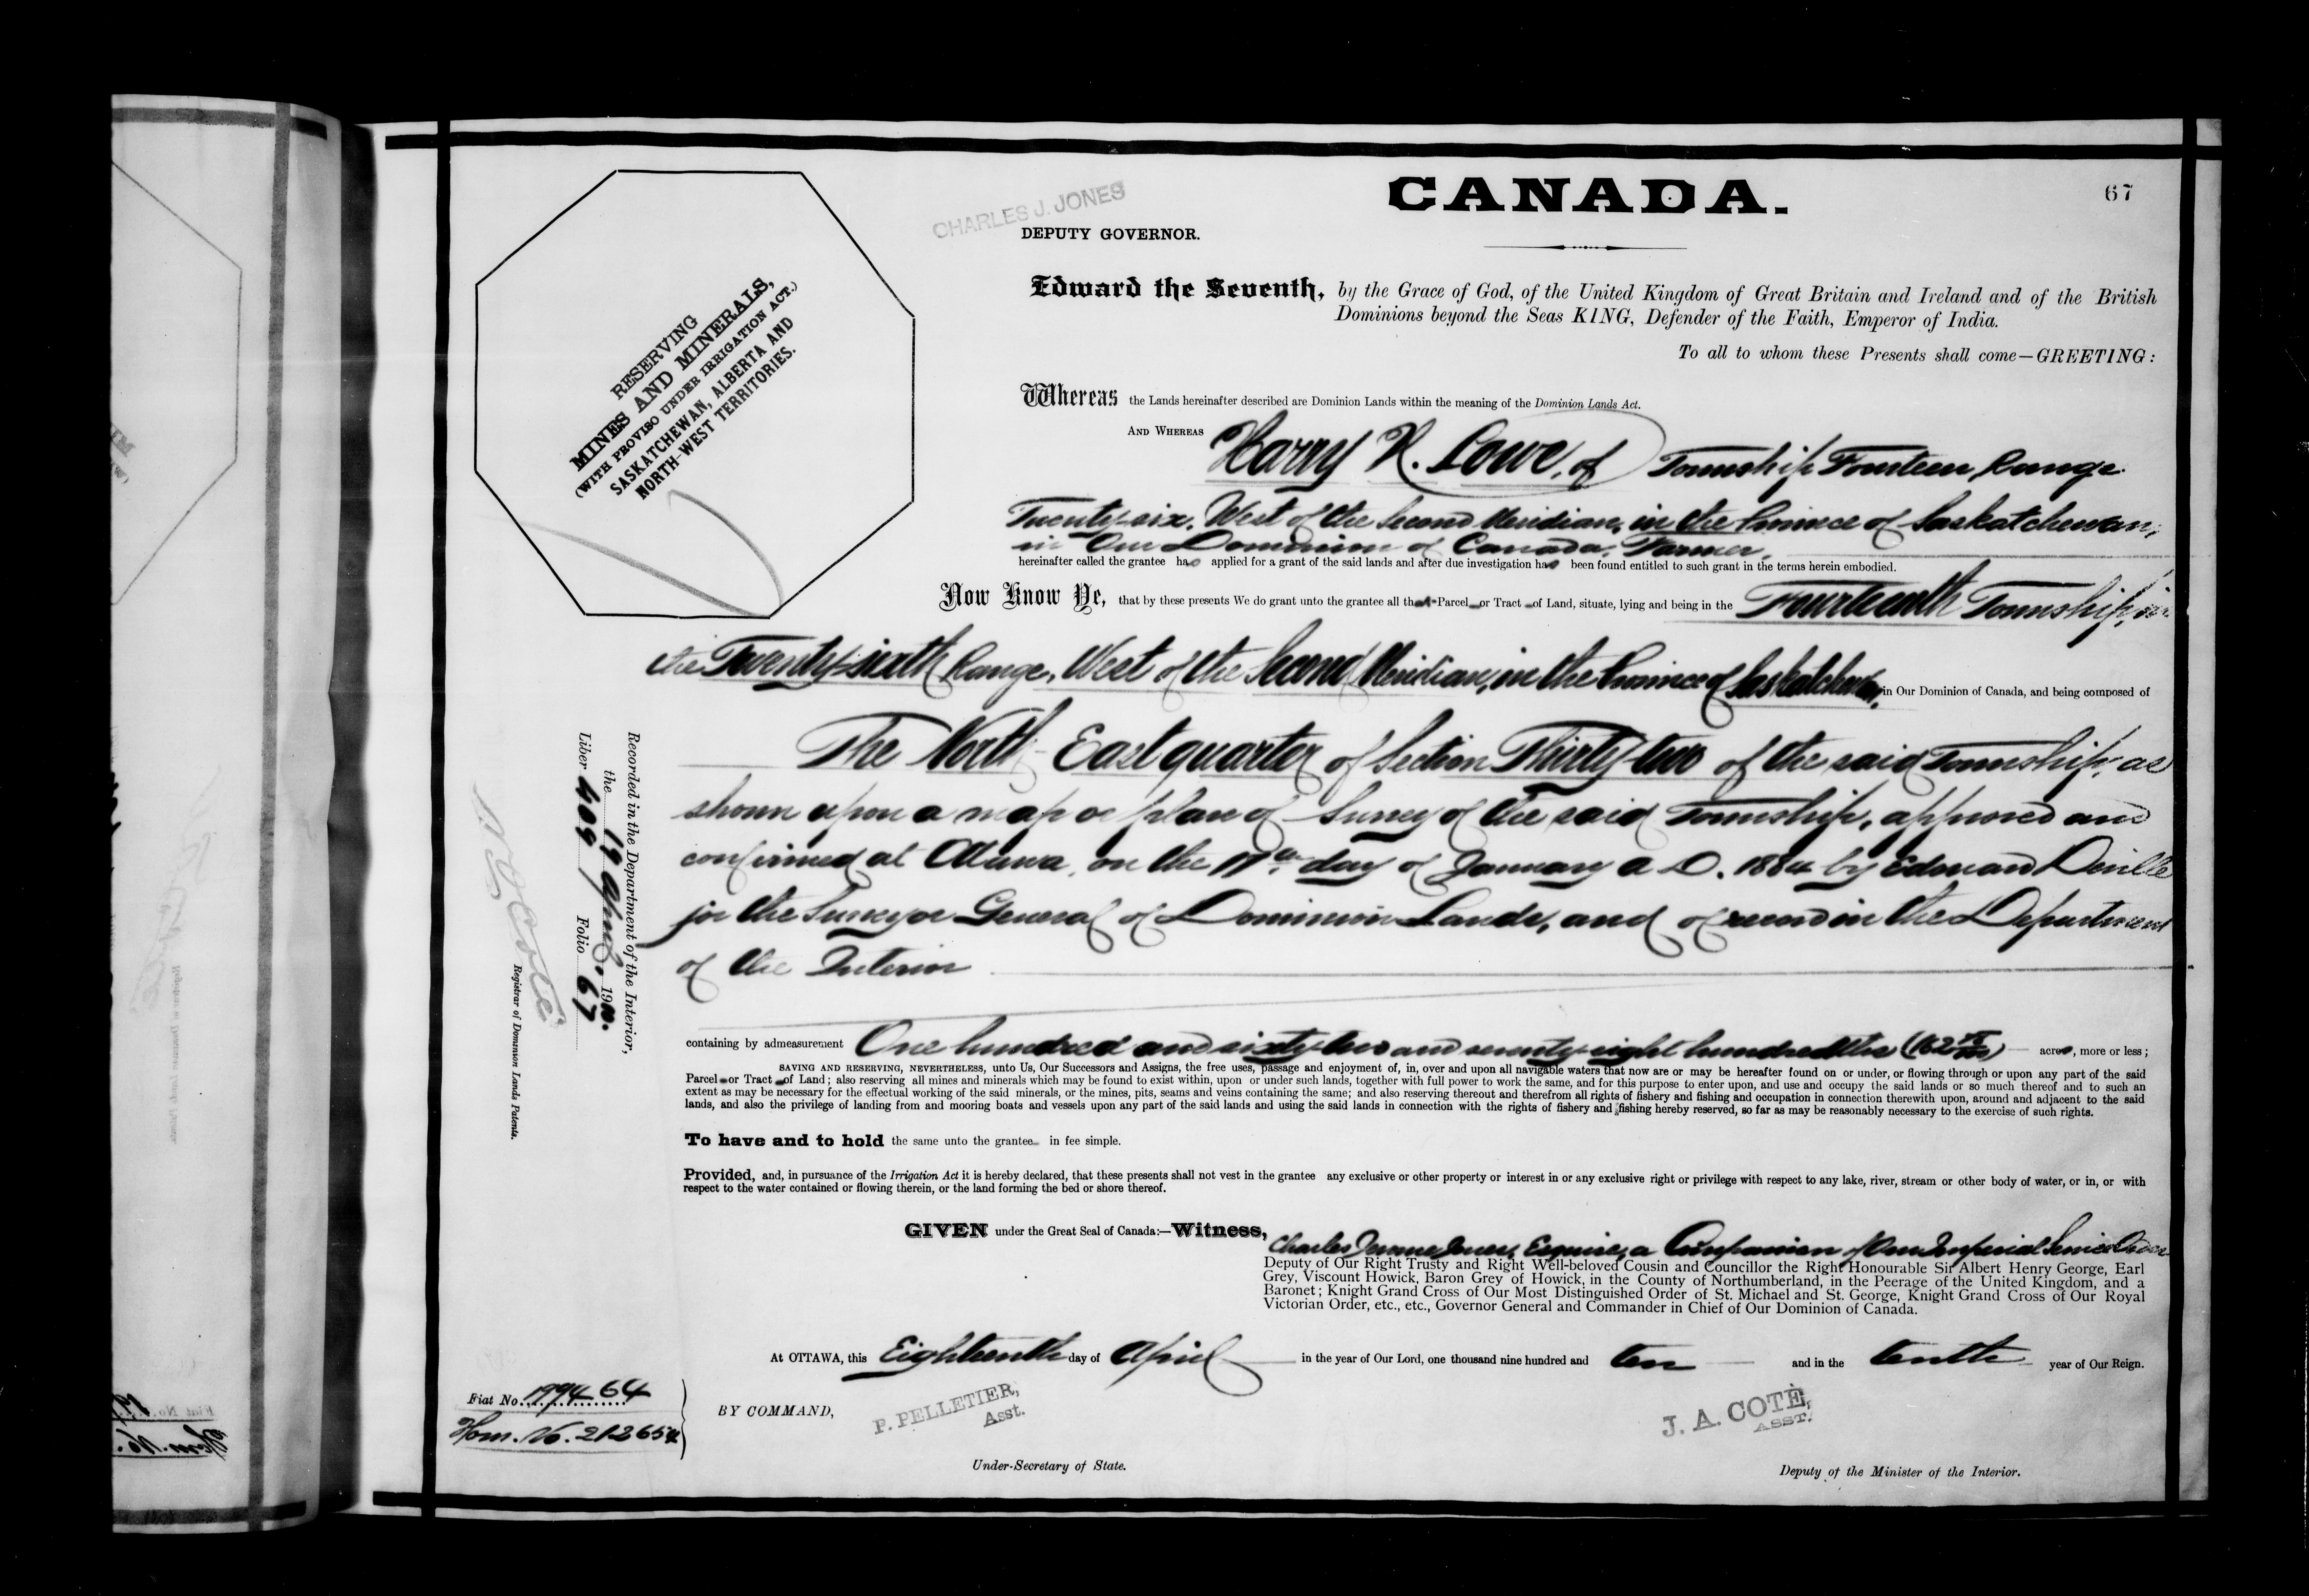 CANADA.
67
CHARLES J. JONES
DEPUTY GOVERNOR.
RESERVING
MINES AND MINERALS,
(WITH PROVISO UNDER IRRIGATION ACT.)
SASKATCHEWAN, ALBERTA AND
NORTH-WEST TERRITORIES.
Edward the Seventh, by the Grace of God, of the United Kingdom of Great Britain and Ireland and of the British
Dominions beyond the Seas KING, Defender of the Faith, Emperor of India.
To all to whom these Presents shall come—GREETING:
Whereas the Lands hereinafter described are Dominion Lands within the meaning of the Dominion Lands Act.
AND WHEREAS Harry K. Lowe, of Township Fourteen, Range
Twenty-six, West of the Second Meridian, in the Province of Saskatchewan,
in Our Dominion of Canada, Farmer,
hereinafter called the grantee has applied for a grant of the said lands and after due investigation has been found entitled to such grant in the terms herein embodied.
Now Know Ye, that by these presents We do grant unto the grantee all that Parcel or Tract of Land, situate, lying and being in the Fourteenth Township, in
the Twenty-sixth Range, West of the Second Meridian, in the Province of Saskatchewan, in Our Dominion of Canada, and being composed of
The North-East quarter of Section Thirty-two of the said Township, as
shown upon a map or plan of Survey of the said Township, approved and
confirmed at Ottawa, on the 17th day of January A.D. 1884 by Edouard Deville
for the Surveyor General of Dominion Lands, and of record in the Department
of the Interior
containing by admeasurement One hundred and sixty-two and seventy-eight hundredths (162 78/100) acres, more or less;
SAVING AND RESERVING, NEVERTHELESS, unto Us, Our Successors and Assigns, the free uses, passage and enjoyment of, in, over and upon all navigable waters that now are or may be hereafter found on or under, or flowing through or upon any part of the said
Parcel or Tract of Land; also reserving all mines and minerals which may be found to exist within, upon or under such lands, together with full power to work the same, and for this purpose to enter upon, and use and occupy the said lands or so much thereof and to such an
extent as may be necessary for the effectual working of the said minerals, or the mines, pits, seams and veins containing the same; and also reserving thereout and therefrom all rights of fishery and fishing and occupation in connection therewith upon, around and adjacent to the said
lands, and also the privilege of landing from and mooring boats and vessels upon any part of the said lands and using the said lands in connection with the rights of fishery and fishing hereby reserved, so far as may be reasonably necessary to the exercise of such rights.
To have and to hold the same unto the grantee in fee simple.
Provided, and, in pursuance of the Irrigation Act it is hereby declared, that these presents shall not vest in the grantee any exclusive or other property or interest in or any exclusive right or privilege with respect to any lake, river, stream or other body of water, or in, or with
respect to the water contained or flowing therein, or the land forming the bed or shore thereof.
GIVEN under the Great Seal of Canada:—Witness,
Charles Jerome Jones, Esquire, a Companion of Our Imperial Service Order
Deputy of Our Right Trusty and Right Well-beloved Cousin and Councillor the Right Honourable Sir Albert Henry George, Earl
Grey, Viscount Howick, Baron Grey of Howick, in the County of Northumberland, in the Peerage of the United Kingdom, and a
Baronet; Knight Grand Cross of Our Most Distinguished Order of St. Michael and St. George, Knight Grand Cross of Our Royal
Victorian Order, etc., etc., Governor General and Commander in Chief of Our Dominion of Canada.
At OTTAWA, this Eighteenth day of April in the year of Our Lord, one thousand nine hundred and ten and in the tenth year of Our Reign.
BY COMMAND,
P. PELLETIER,
Asst.
Under-Secretary of State.
J. A. COTÉ,
ASST.
Deputy of the Minister of the Interior.
Fiat No. 199464
Hom. No. 212654
Recorded in the Department of the Interior,
the 19 April 1910.
Liber 409 Folio 67
N. O. Coté
Registrar of Dominion Lands Patents.